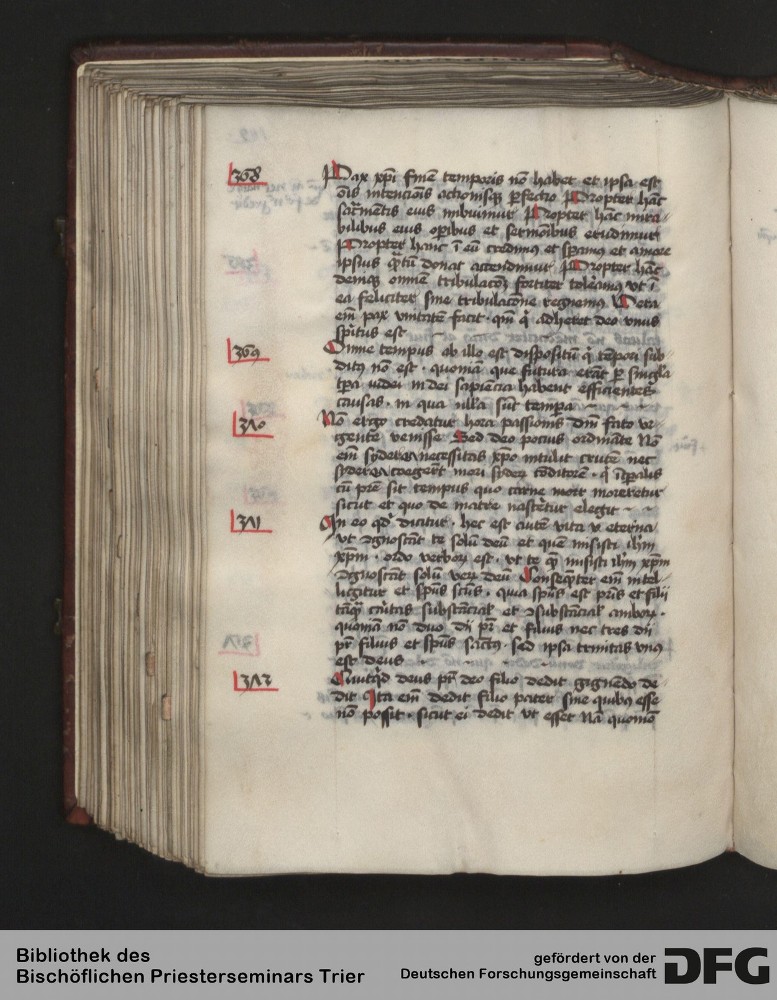 368
Pax xpi finē temporis nō habet et ipsa est
oīs intencionis actionisqȝ ꝑfectio Propter hāc
sacr̄mentis eius imbuimur Propter hāc mira
bilibus eius oꝑibus et sermōibus erudimur
Propter hanc ī eū credimus et speramus et amore
ipsius quātū donat accendimur Propter hāc
deniqȝ omnē tribulacōȝ fortiter tolerāus vt ī
ea feliciter sine tribulacōne regnemus Vera
em̄ pax vnitatē facit · qm̄ qͥ adheret deo vnus
spiritus est
369
Omne tempus ab illo est dispositū qͥ tēpori sub
ditus nō est · quoniā que futura erāt ꝑ singla
tꝑa in dei sapiēcia habent efficientes
causas · in qua nulla sūt tempora
370
Nō ergo credatur hora passionis dn̄i fato vr
gente venisse Sed deo pocius ordināte Nō
em̄ syderea necessitas xp̄o intulit crucē nec
syderea coegert mori syderū cōditorē · qͥ
cū pre sit tempus quo carne moreretur
sicut et quo de matre nasceretur elegit
371
In eo qd̓ dicitur · hec est autē vita eterna
vt ꝯgnoscāt te solū deū et quē misisti ihm̄
xpm̄ · ordo verborȝ est · vt te et quē misisti ihm̄ xpm̄
ꝯgnoscāt solū verū deū Consequēter em̄ intel
ligitur et spūs scūs · quia spūs est pr̄is et filii
tāqȝ caritas substācialis et ꝯsubstācialis amborȝ ·
quoniā nō duo dii pr̄ et filius nec tres dii
pr̄ filius et spūs sāctus · sed ipsa trinitas vnus
est deus
372
Quitqͥd deus pr̄ deo filio dedit gignēdo de
dit Ita em̄ dedit filio pater sine quibus esse
nō possit · sicut ei dedit vt esset Nā quomō
Bibliothek des
Bischöflichen Priesterseminars Trier
gefördert von der
Deutschen Forschungsgemeinschaft
DFG